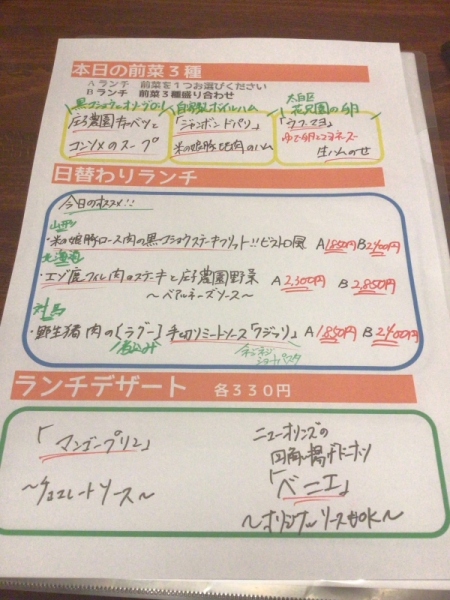 本日の前菜3種
Aランチ 前菜を1つお選びください
Bランチ 前菜3種盛り合わせ
黒コショウとオリーブの
庄子農園キャベツと
コンソメのスープ
自家製ボイルハム
「ジャンボンドパリ」
米の娘豚もも肉のハム
太白区
花兄園の卵
「ウフマヨ」
ゆで卵とマヨネーズ
生ハムのせ
日替わりランチ
今日のオススメ!!
山形
・米の娘豚ロース肉の黒コショウステーキフリット!!ビストロ風 A1,850円 B2,400円
北海道
・エゾ鹿フィレ肉のステーキと庄子農園野菜 A2,300円 B2,850円
〜ベアルネーズソース〜
対馬
・野生猪肉の〔ラグー〕手切りミートソース「フジッリ」 A1,850円 B2,400円
煮込み
ネジネジ
ショートパスタ
ランチデザート 各330円
「マンゴープリン」
〜チョコレートソース〜
ニューオリンズの
四角い揚げドーナツ
「ベニエ」
〜オリジナルソースもOK〜